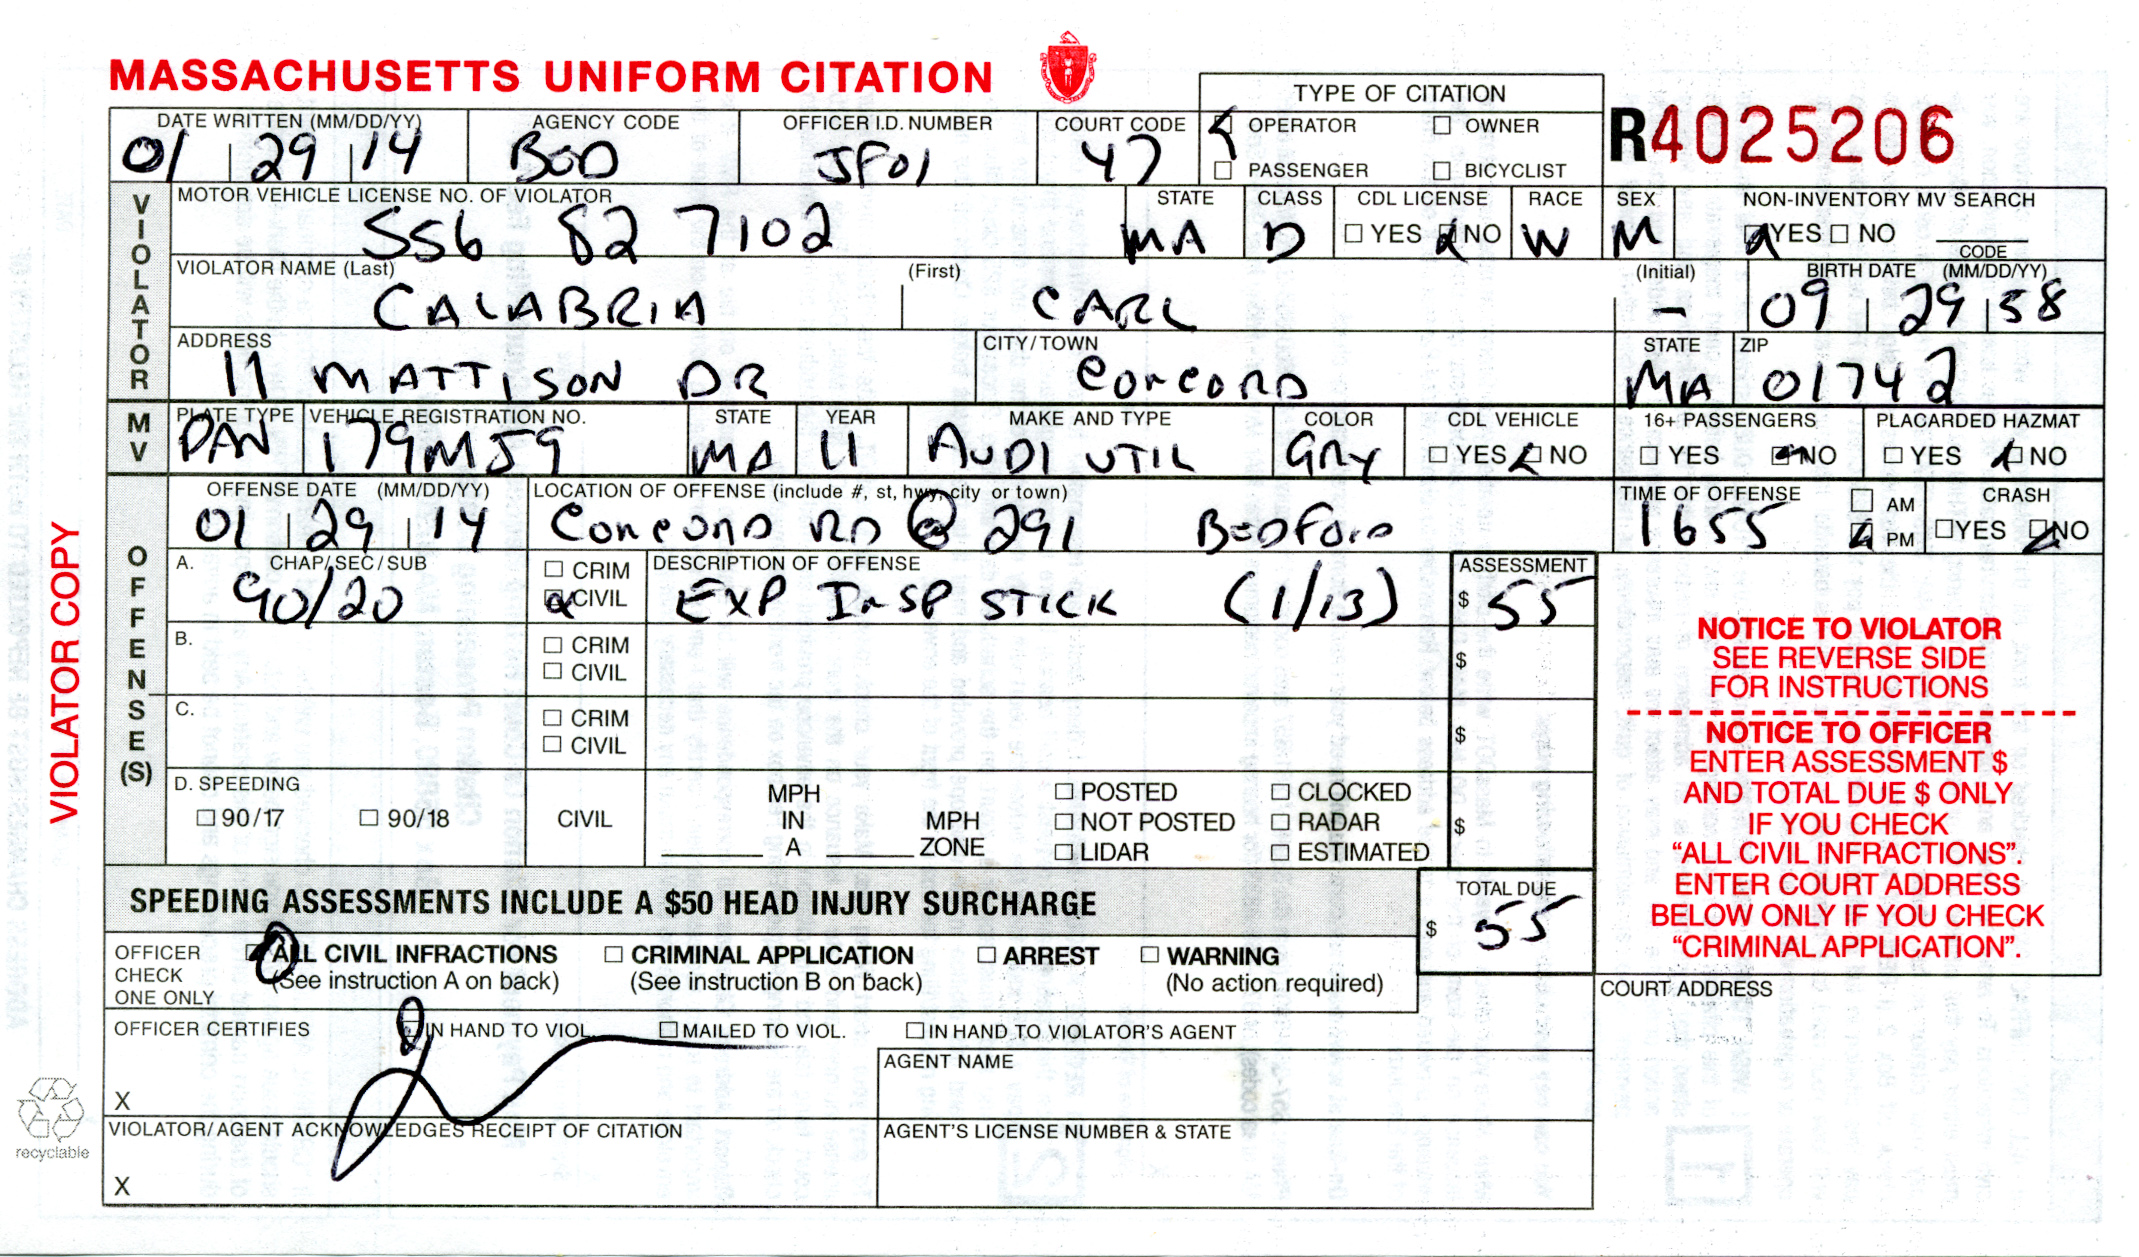 MASSACHUSETTS UNIFORM CITATION
TYPE OF CITATION
R4025206
DATE WRITTEN (MM/DD/YY) AGENCY CODE OFFICER I.D. NUMBER COURT CODE OPERATOR OWNER
01 29 14 BED JF01 47 PASSENGER BICYCLIST
VIOLATOR
MOTOR VEHICLE LICENSE NO. OF VIOLATOR STATE CLASS CDL LICENSE RACE SEX NON-INVENTORY MV SEARCH
556 82 7102 MA D YES NO W M YES NO CODE
VIOLATOR NAME (Last) (First) (Initial) BIRTH DATE (MM/DD/YY)
CALABRIA CARL – 09 29 58
ADDRESS CITY/TOWN STATE ZIP
11 MATTISON DR CONCORD MA 01742
MV
PLATE TYPE VEHICLE REGISTRATION NO. STATE YEAR MAKE AND TYPE COLOR CDL VEHICLE 16+ PASSENGERS PLACARDED HAZMAT
PAN 179MJ9 MA 11 AUDI UTIL GRY YES NO YES NO YES NO
OFFENSE(S)
OFFENSE DATE (MM/DD/YY) LOCATION OF OFFENSE (include #, st, hwy, city or town) TIME OF OFFENSE AM CRASH
01 29 14 CONCORD RD @ 291 BEDFORD 1655 PM YES NO
A. CHAP/SEC/SUB CRIM DESCRIPTION OF OFFENSE ASSESSMENT
90/20 CIVIL EXP INSP STICK (1/13) $ 55
B. CRIM
CIVIL $
C. CRIM
CIVIL $
D. SPEEDING MPH POSTED CLOCKED
90/17 90/18 CIVIL IN MPH NOT POSTED RADAR $
A ZONE LIDAR ESTIMATED
SPEEDING ASSESSMENTS INCLUDE A $50 HEAD INJURY SURCHARGE
TOTAL DUE
$ 55
OFFICER CHECK ONE ONLY
ALL CIVIL INFRACTIONS CRIMINAL APPLICATION ARREST WARNING
(See instruction A on back) (See instruction B on back) (No action required)
OFFICER CERTIFIES IN HAND TO VIOL. MAILED TO VIOL. IN HAND TO VIOLATOR'S AGENT
X
AGENT NAME
VIOLATOR/AGENT ACKNOWLEDGES RECEIPT OF CITATION AGENT'S LICENSE NUMBER & STATE
X
NOTICE TO VIOLATOR
SEE REVERSE SIDE
FOR INSTRUCTIONS
NOTICE TO OFFICER
ENTER ASSESSMENT $
AND TOTAL DUE $ ONLY
IF YOU CHECK
“ALL CIVIL INFRACTIONS”.
ENTER COURT ADDRESS
BELOW ONLY IF YOU CHECK
“CRIMINAL APPLICATION”.
COURT ADDRESS
VIOLATOR COPY
recyclable